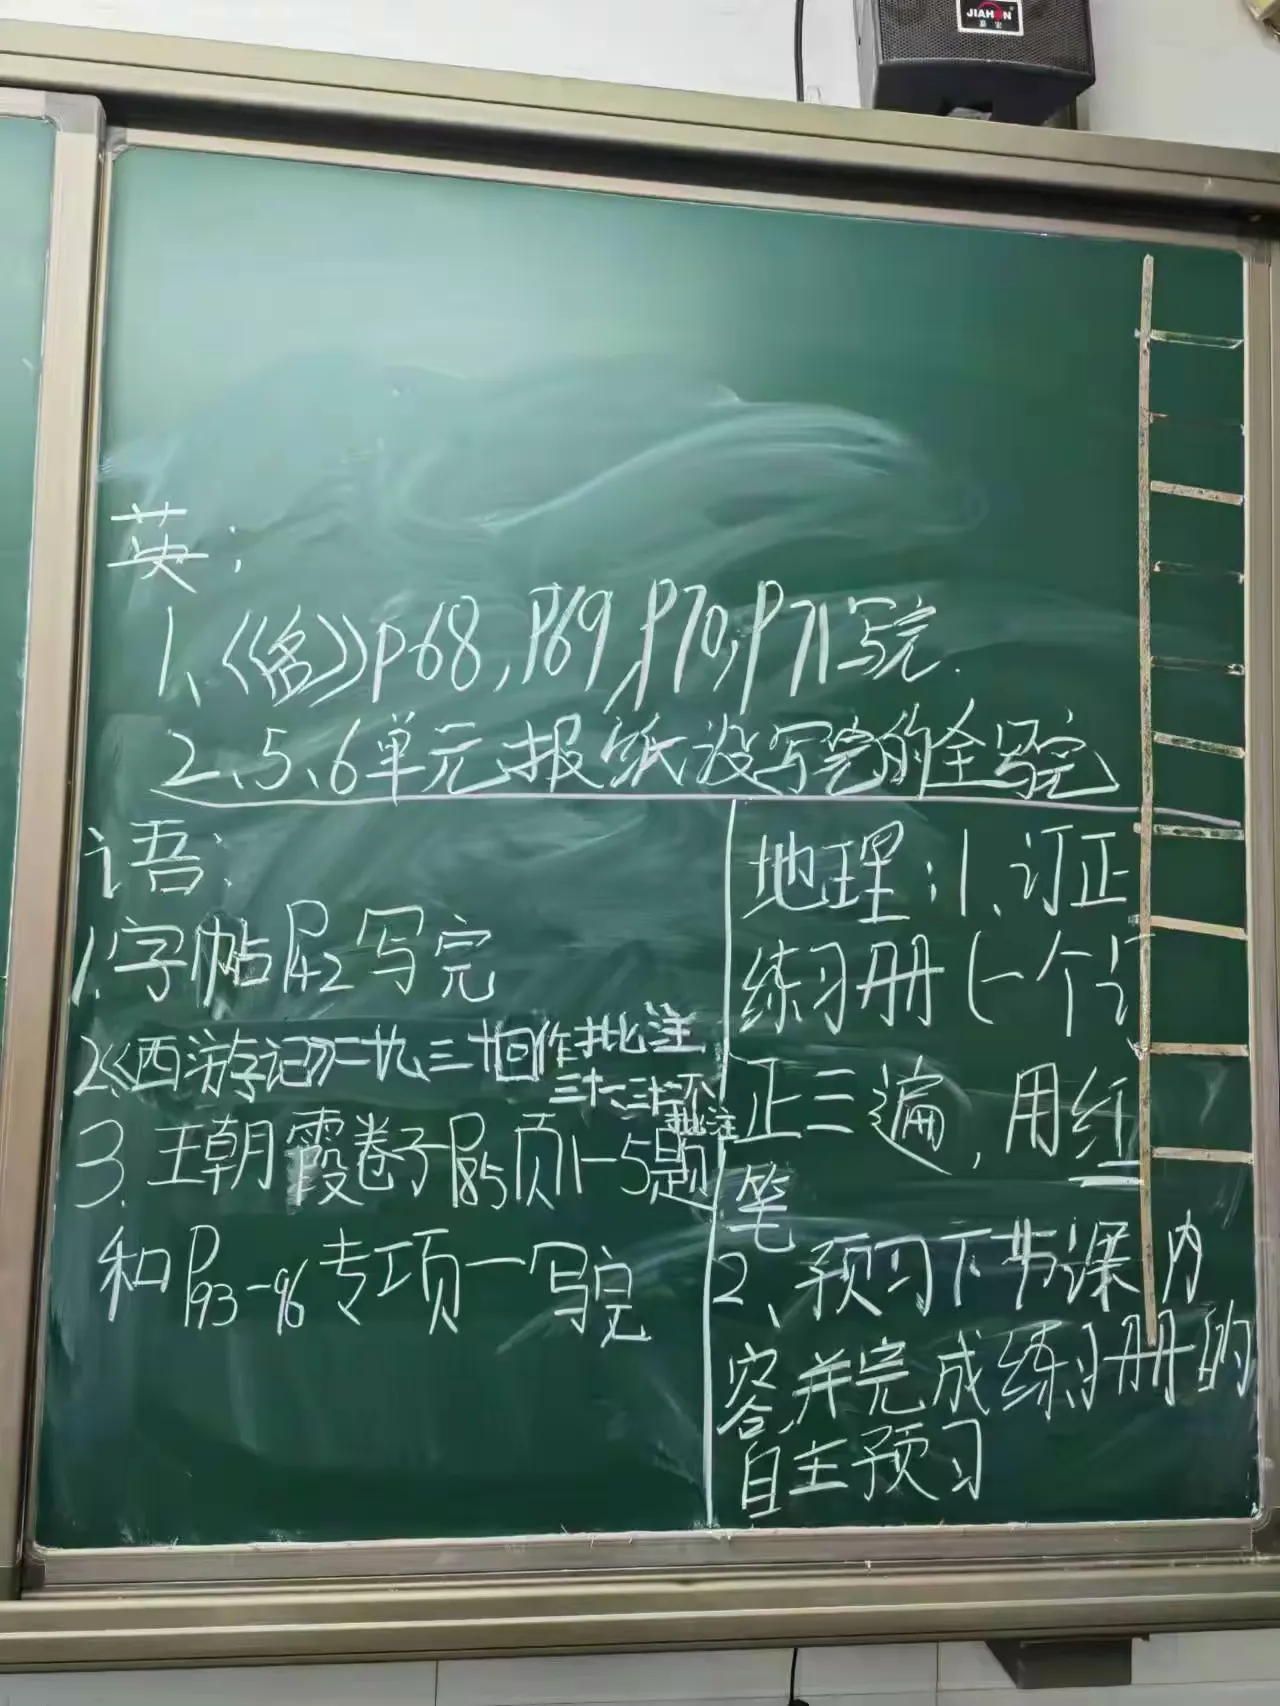 JIAHON
英：
1、《名》P68, P69, P70, P71写完.
2、5、6单元报纸没写完的全写完
语：
1.字帖P42写完
2.《西游记》二十九,三十回作批注
三十一,三十二不
批注
3.王朝霞卷子P85页1-5题
和P93-96专项一写完
地理：1、订正
练习册(一个订
正三遍,用红
笔
2、预习下节课内
容,并完成练习册的
自主预习